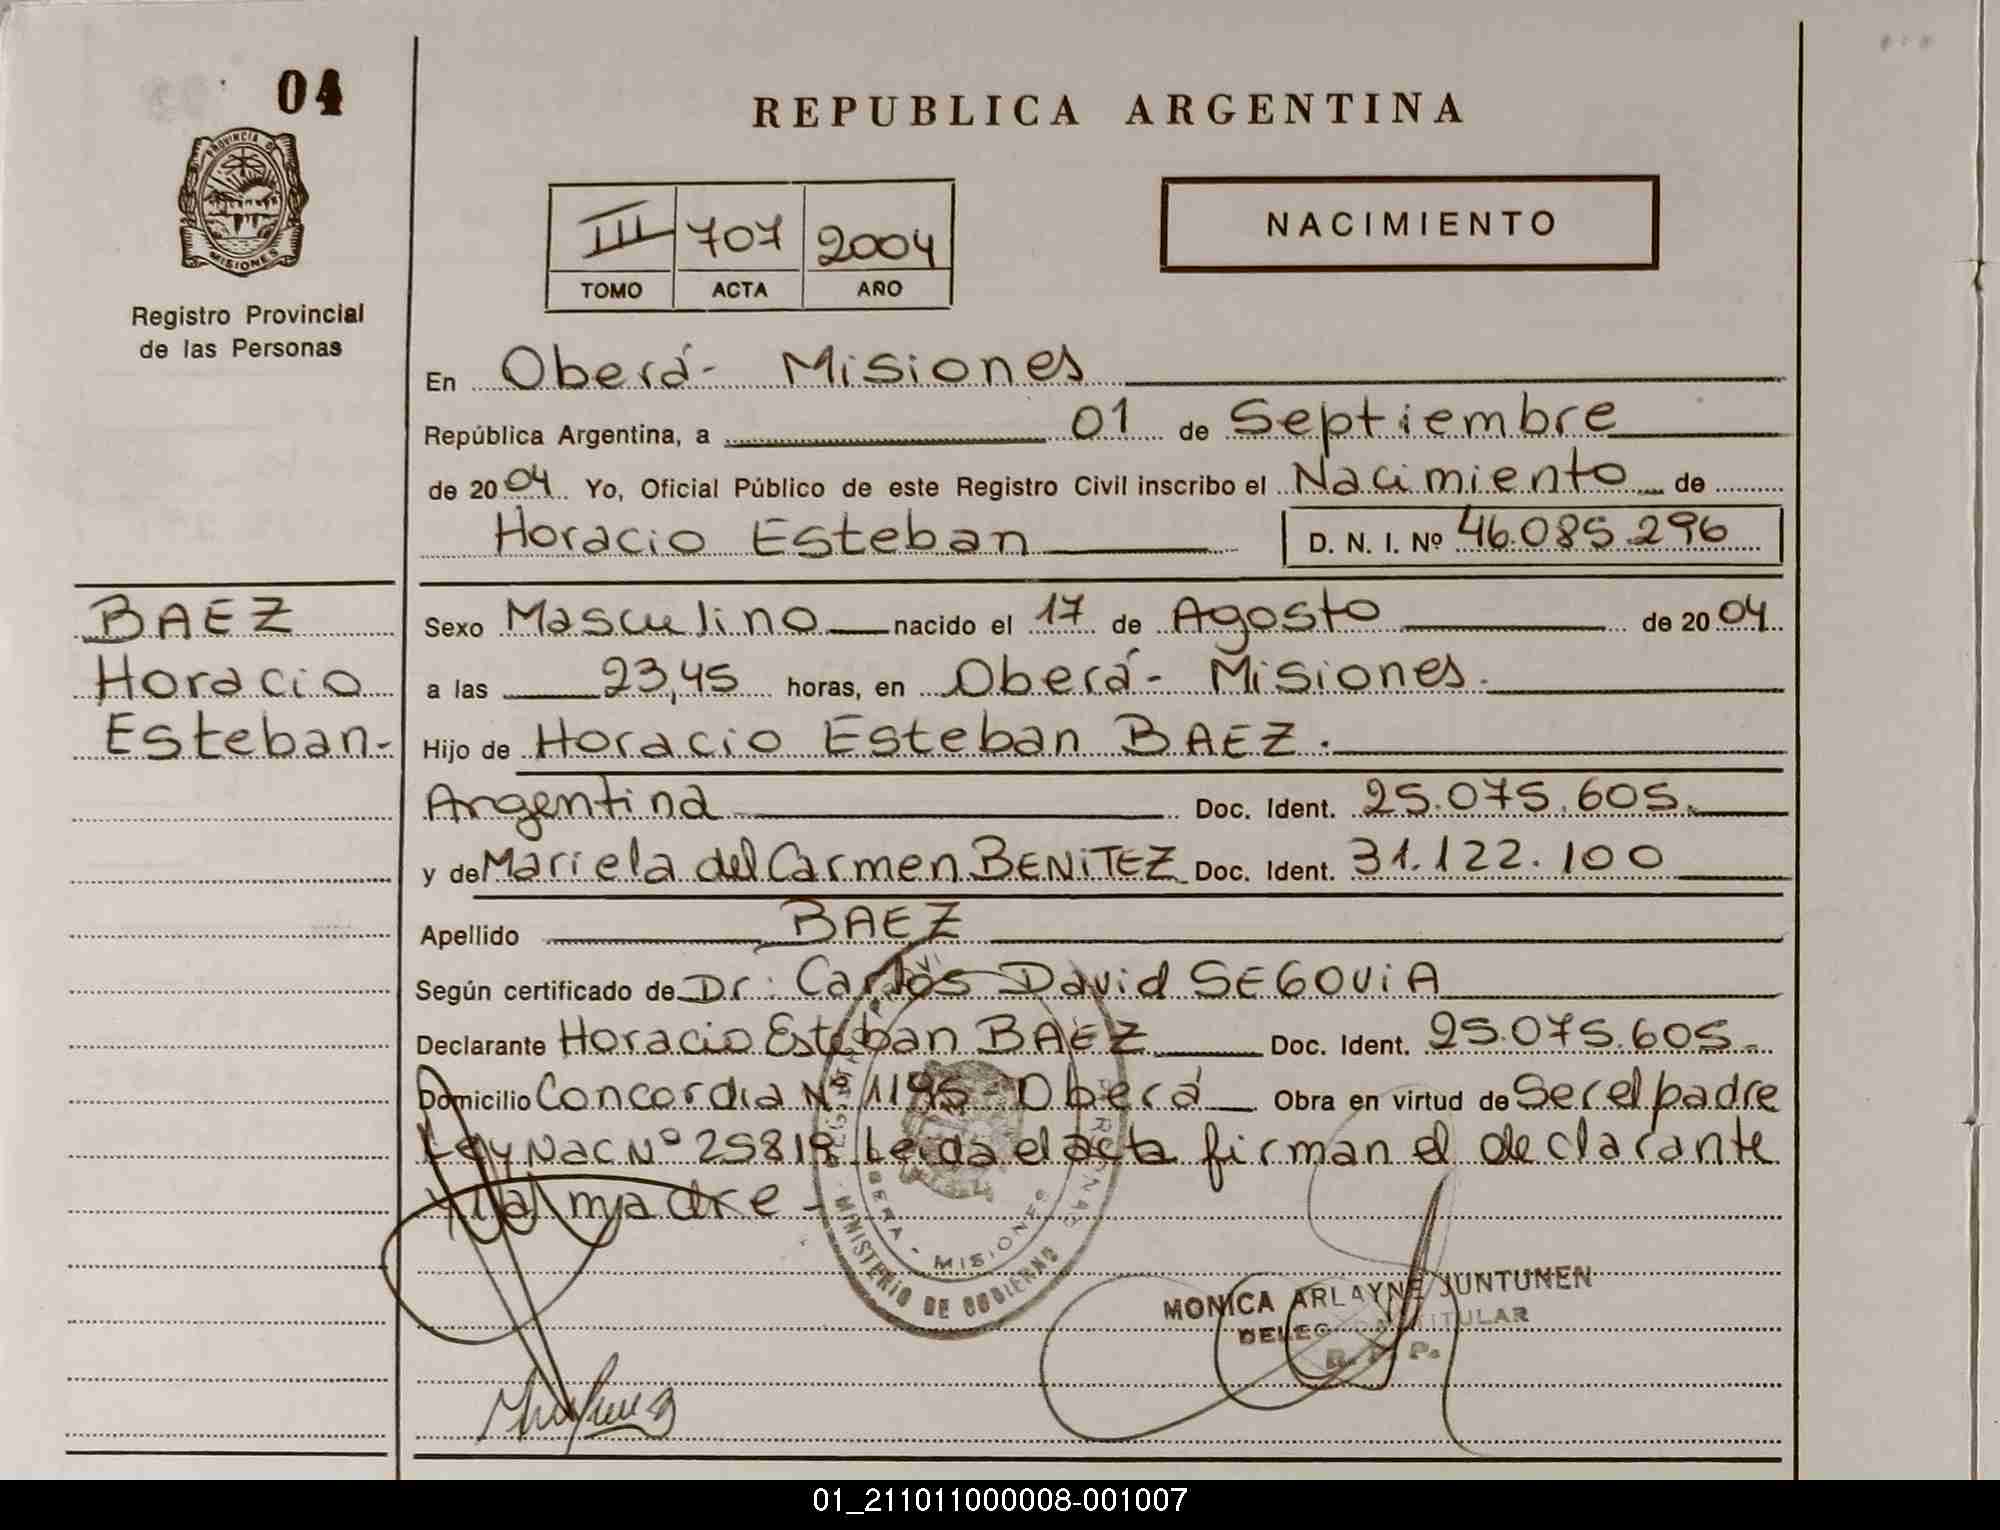 04
PROVINCIA DE
MISIONES
Registro Provincial
de las Personas
REPUBLICA ARGENTINA
III 707 2004
TOMO ACTA AÑO
NACIMIENTO
En Oberá- Misiones
República Argentina, a 01 de Septiembre
de 2004 Yo, Oficial Público de este Registro Civil inscribo el Nacimiento de
Horacio Esteban D. N. I. Nº 46.085.296
BAEZ
Horacio
Esteban-
Sexo Masculino nacido el 17 de Agosto de 2004
a las 23,45 horas, en Oberá- Misiones.
Hijo de Horacio Esteban BAEZ.
Argentina Doc. Ident. 25.075.605.
y de Mariela del Carmen BENiTEZ Doc. Ident. 31.122.100
Apellido BAEZ
Según certificado de Dr: Carlos David SEGOViA
Declarante Horacio Esteban BAEZ Doc. Ident. 25.075.605.-
Domicilio Concordia Nº 1195- Oberá Obra en virtud de Ser el padre
Ley Nac Nº 25819 Leida el acta firman el declarante
y la madre -
OBERA - MISIONES
MINISTERIO DE GOBIERNO
MONICA ARLAYNE JUNTUNEN
DELEGADA TITULAR
R. P. P.
01_211011000008-001007